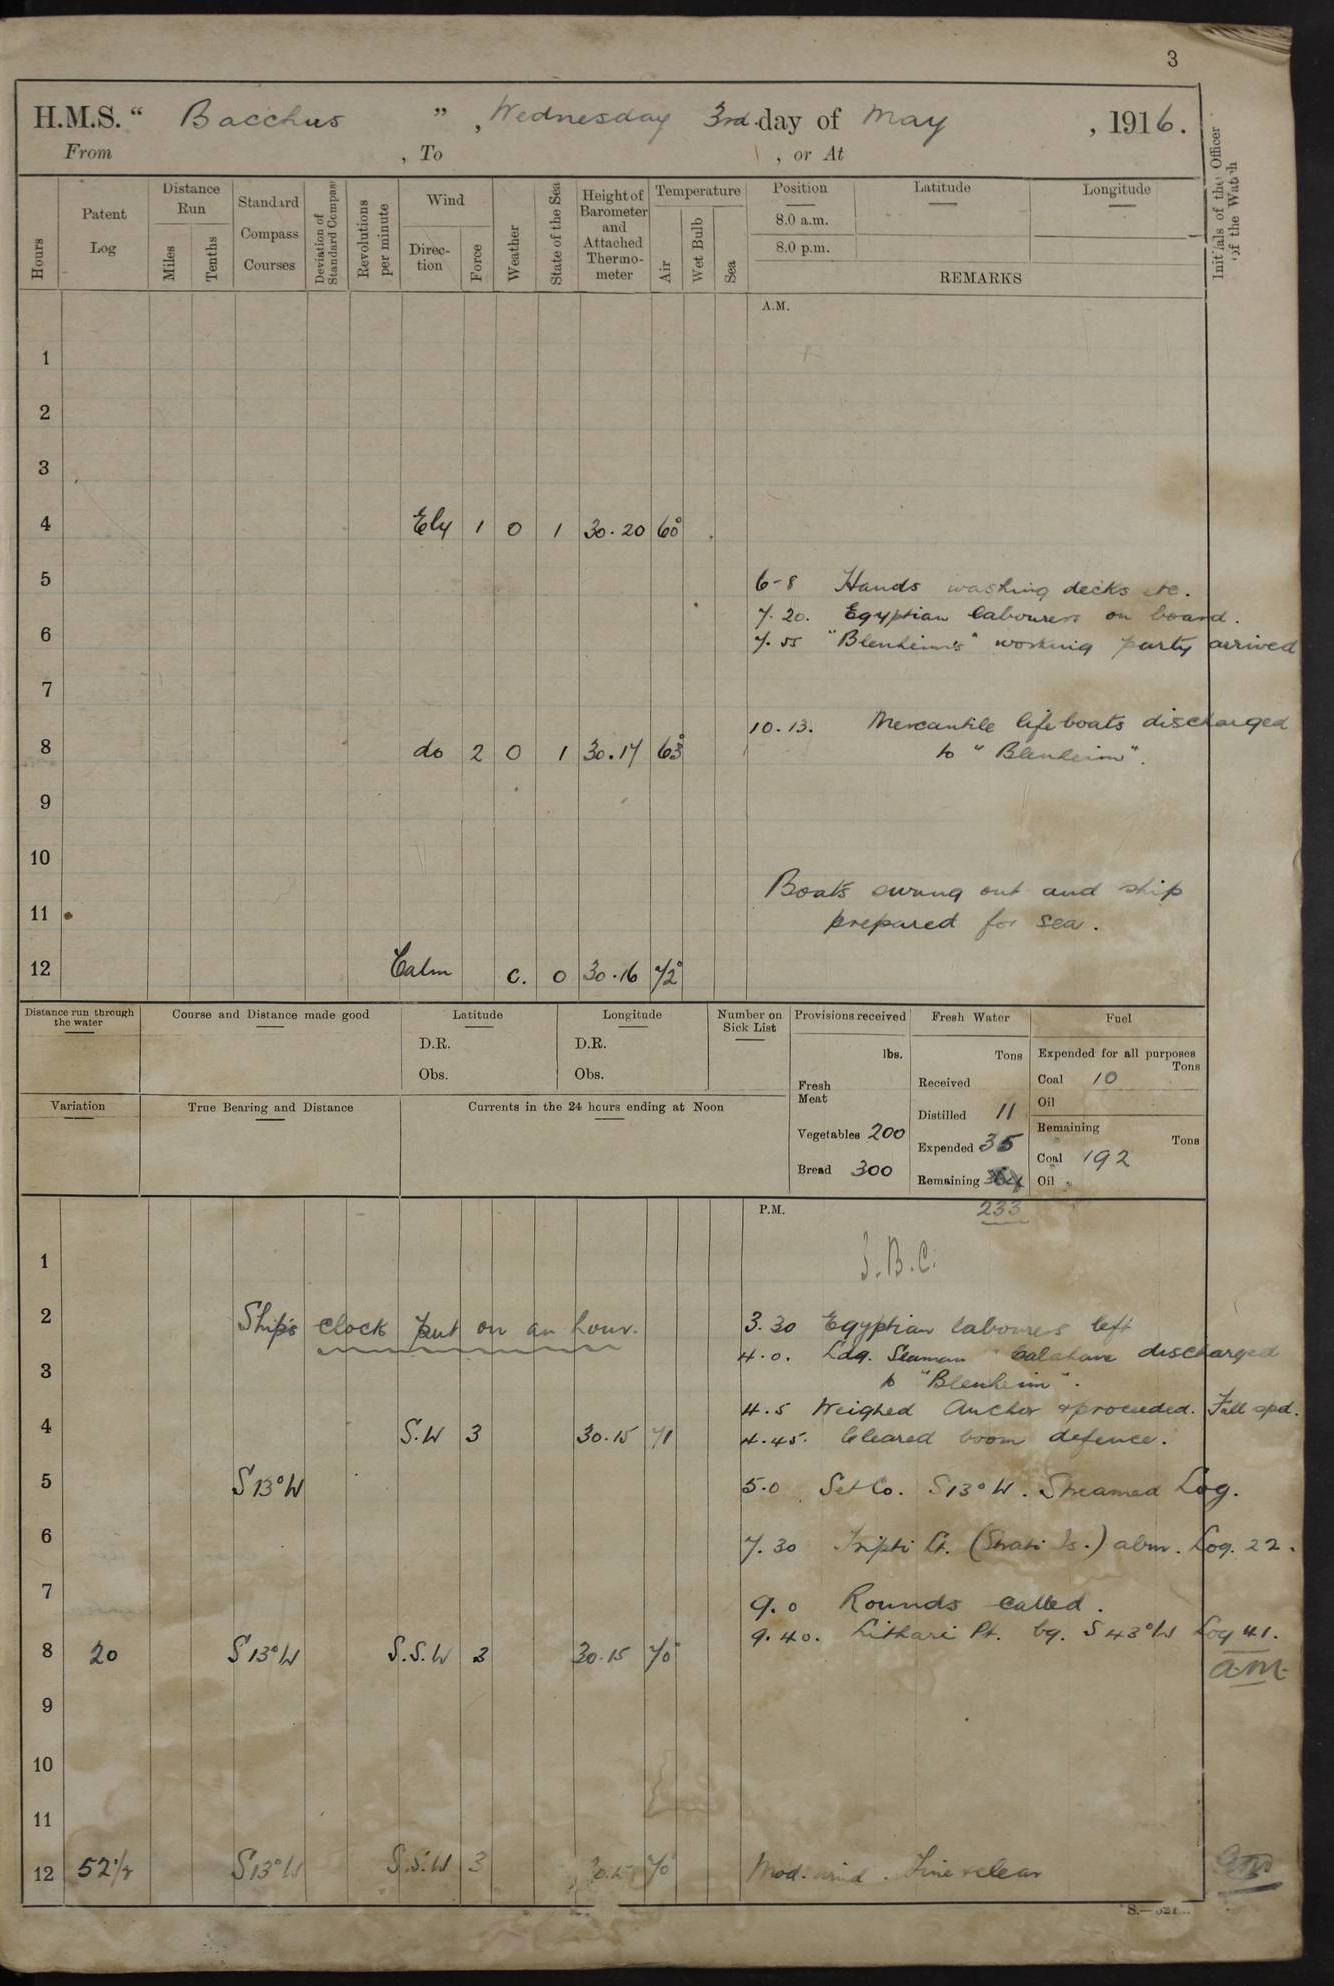 3
H.M.S. “ Bacchus ”, Wednesday 3rd day of May , 1916.
From , To , or At
Hours
Patent Log
Distance Run
Miles
Tenths
Standard Compass Courses
Deviation of Standard Compass
Revolutions per minute
Wind
Direc-tion
Force
Weather
State of the Sea
Height of Barometer and Attached Thermo-meter
Temperature
Air
Wet Bulb
Sea
Position Latitude Longitude
8.0 a.m.
8.0 p.m.
REMARKS
Initials of the Officer of the Watch
A.M.
1
2
3
4 Ely 1 0 1 30.20 60°
5
6-8 Hands washing decks etc.
7.20. Egyptian labourers on board.
6
7.55 "Blenheim's" working party arrived
7
10.13. Mercantile lifeboats discharged
8 do 2 0 1 30.17 63°
to "Blenheim".
9
10
Boats swung out and ship
11
prepared for sea.
12 Calm c. 0 30.16 72°
Distance run through the water
Course and Distance made good
Latitude
D.R.
Obs.
Longitude
D.R.
Obs.
Number on Sick List
Provisions received
lbs.
Fresh Meat
Vegetables 200
Bread 300
Fresh Water
Tons
Received
Distilled 11
Expended 35
Remaining
233
Fuel
Expended for all purposes
Tons
Coal 10
Oil
Remaining
Tons
Coal 192
Oil
Variation
True Bearing and Distance
Currents in the 24 hours ending at Noon
P.M.
1
J.B.C.
2 Ship's clock put on an hour.
3.30 Egyptian labourers left
4.0. Ldg. Seaman discharged
3
to "Blenheim".
4.5 Weighed Anchor & proceeded. Full spd.
4 S.W 3 30.15 71
4.45. Cleared boom defence.
5 S13°W
5.0 Set Co. S13°W. Streamed Log.
6
7.30 Tripti Lt. (Strati Is.) abm. Log. 22.
7
9.0 Rounds called.
9.40. Lithari Pt. bg. S43°W Log 41.
8 20 S13°W S.S.W 3 30.15 70°
a.m.
9
10
11
12 52½ S13°W S.S.W 3 30.15 70
Mod. wind. Fine & clear